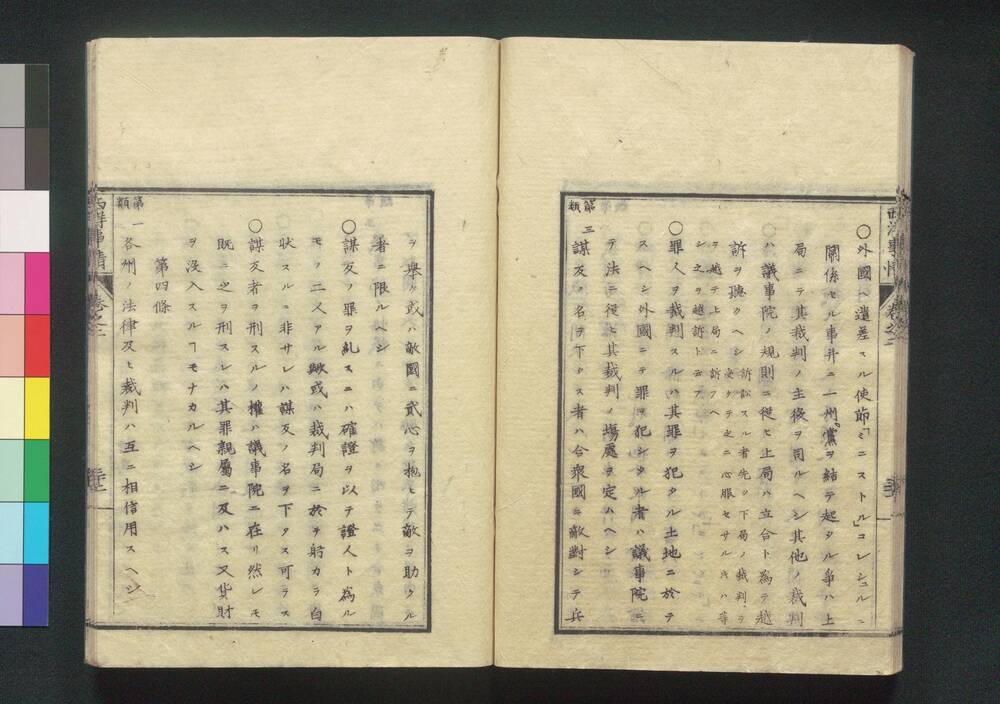 ○外國ヘ遣差スル使節「ミニストル」コレシュルニ
關係セル事并ニ一州黨ヲ結テ起タル爭ハ上
局ニテ其裁判ノ主後ヲ司ルヘシ其他ノ裁判
ハ議事院ノ規則ニ從ヒ上局ハ立合ト為テ越
訴ヲ聴クヘシ
訴訟スル者先ツ下局ノ裁判ヲ
受ケテ之ニ心服セサルキハ等
ヲ越テ上局ニ訴フヘ
シ之ヲ越訴ト云フ
○罪人ヲ裁判スルハ其罪ヲ犯タル土地ニ於テ
スヘシ外國ニテ罪ヲ犯シタル者ハ議事院ニ
テ法ニ従ヒ其裁判ノ塲處ヲ定ムヘシ
第三類
謀反ノ名ヲ下タス者ハ合衆國ニ敵對シテ兵
西洋事情
卷之二
ヲ擧ケ或ハ敵國ニ貳心ヲ抱ヒテ敵ヲ助クル
者ニ限ルヘシ
○謀反ノ罪ヲ糺スニハ確證ヲ以テ證人ト為ル
モノ二人アル歟或ハ裁判局ニ於テ躬カラ白
状スルニ非サレハ謀反ノ名ヲ下タス可ラス
○謀反者ヲ刑スルノ權ハ議事院ニ在リ然レモ
既ニ之ヲ刑スレハ其罪親屬ニ及ハス又貨財
ヲ没入スルヿモナカルヘシ
第四條
第一類
各州ノ法律及ヒ裁判ハ互ニ相信用スヘシ
西洋事情
卷之二